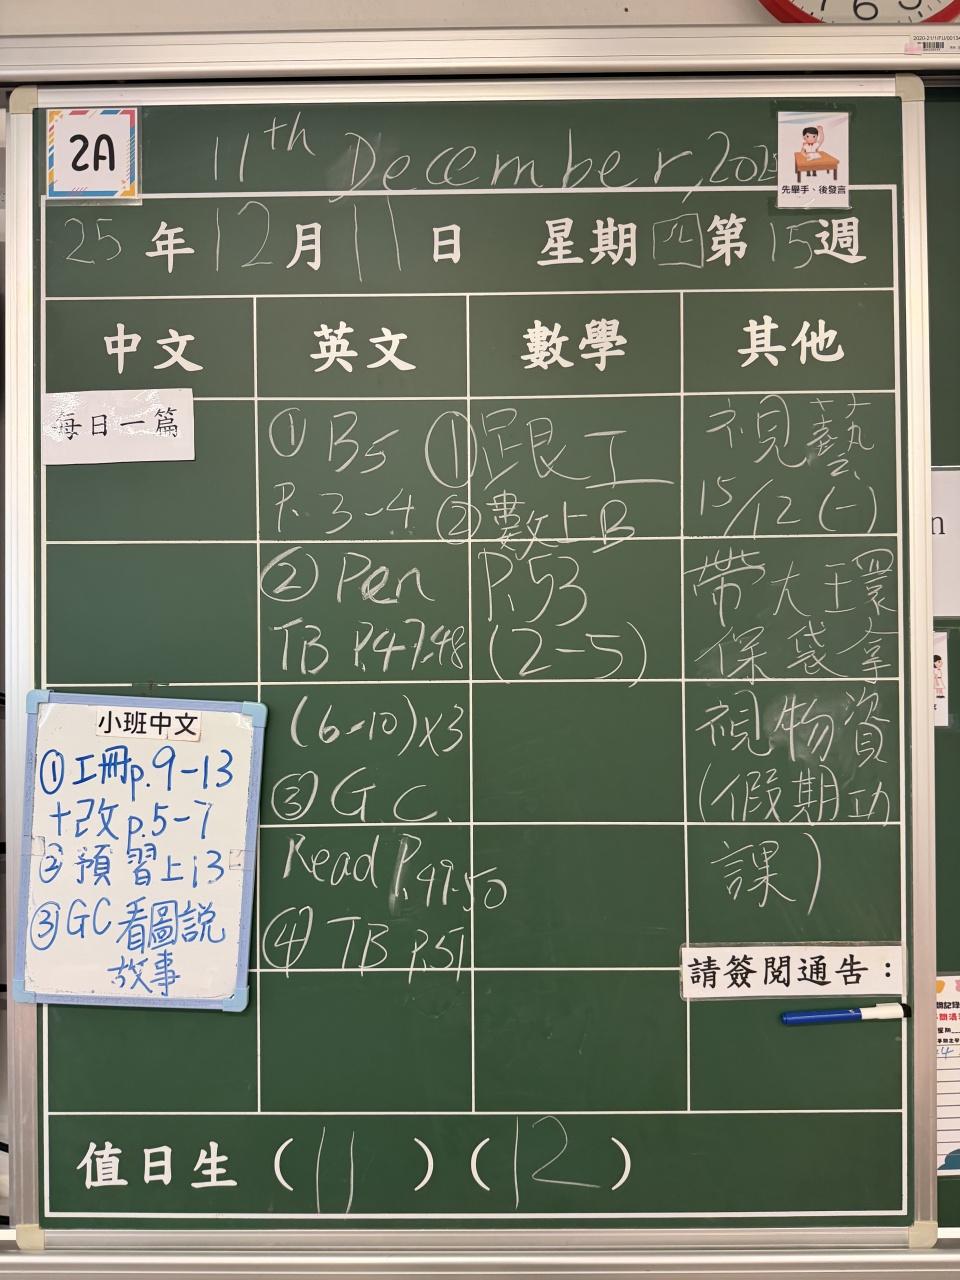 2A
11th December, 202
先舉手、後發言
25 年 12 月 11 日 星期 四 第 15 週
中文
每日一篇
小班中文
①工冊p.9-13
+改p.5-7
②預習上i3
③GC看圖說
故事
英文
① B5
P. 3-4
② Pen
TB P.47-48
(6-10)x3
③ G.C.
Read P.49-50
④ TB P.51
數學
① 跟工
② 數上B
P.53
(2-5)
其他
視藝
15/12 (一)
帶大環
保袋拿
視物資
(假期功
課)
請簽閱通告：
值日生 ( 11 ) ( 12 )